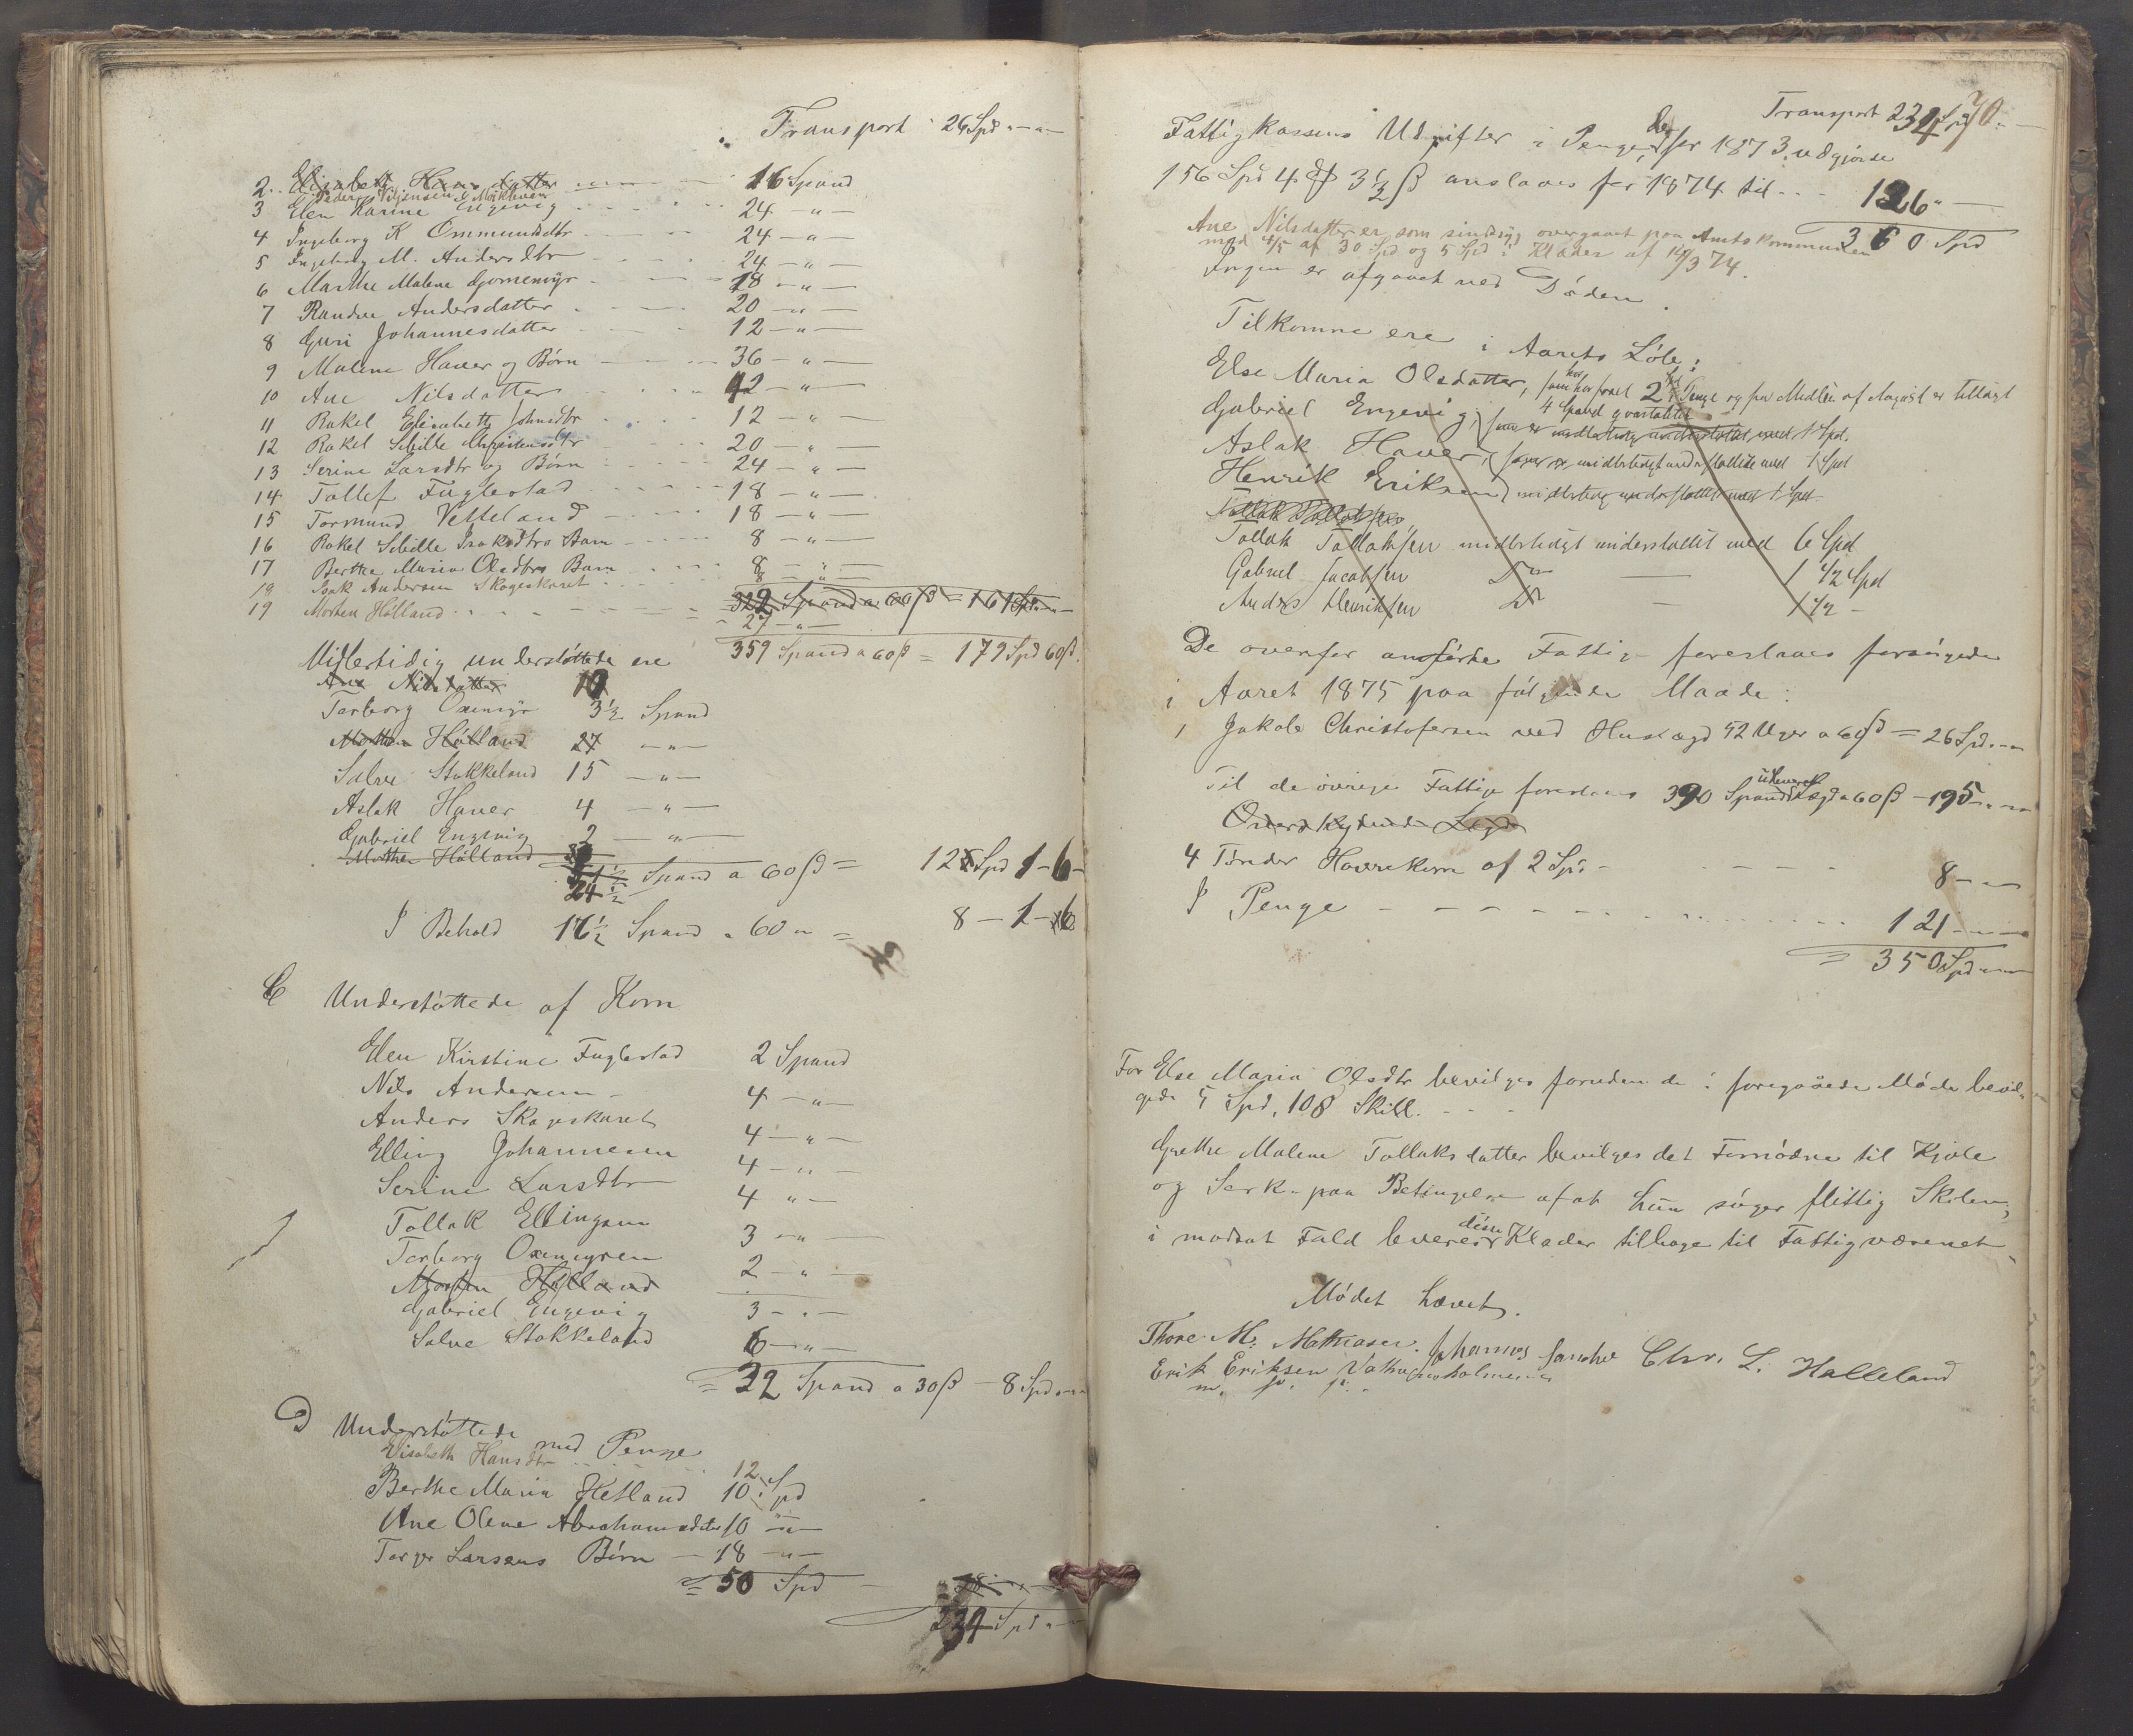 Transport 26 Spd " — " —
2. Elisabeth Hansdatter 16 Spand
Peder Villumsen Mykleven
3 Elen Karine Engevig 24 — " —
4 Ingeborg K Ommundsdtr 24 — " —
5 Ingeborg M. Andersdtr 24 — " —
6 Marthe Malene Gjomemyr 18 — " —
7 Randve Andersdatter 20 — " —
8 Guri Johannesdatter 12 — " —
9 Malene Haver og Børn 36 — " —
10 Ane Nilsdatter 12 — " —
11 Rakel Elisabeth Johnsdtr 12 — " —
12 Rakel Sibille Christensdtr 20 — " —
13 Serine Larsdtr og Børn 24 — " —
14 Tollef Fuglestad 18 — " —
15 Tormund Velleland 18 — " —
16 Rakel Sibille Isaksdtrs Barn 8 — " —
17 Berthe Maria Olsdtrs Barn 8 — " —
18 Isak Andersen Skageskaret 8 — " —
19 Morten Hölland
= 322 Spand a 60 ß = 161 Spd " — " —
27 — " —
359 Spand a 60 ß = 179 Spd 60 ß.
Midlertidig understøttede ere
Ane Nilsdatter 10
Torborg Oxemyr 3½ Spand
Morten Hölland 27 — " —
Salve Stokkeland 15 — " —
Aslak Haver 4 — " —
Gabriel Engevig 2 — " —
Morten Hölland
24½ Spand a 60 ß = 12 Spd 1 - 6 -
I Behold 16½ Spand a 60 " = 8 — 1 — 6
C Understøttede af Korn
Elen Kirstine Fuglestad 2 Spand
Nils Andersen 4 — " —
Anders Skageskaret 4 — " —
Elling Johannesen 4 — " —
Serine Larsdtr 4 " —
Tollak Ellingsen 3 — " —
Torborg Oxemyren 2 — " —
Morten Hölland
Gabriel Engevig 3 — " —
Salve Stokkeland 6 — " —
= 32 Spand a 30 ß — 8 Spd " — "
D Understøttede med Penge
Elisabeth Hansdtr 12
Berthe Maria Hetland 10 Spd
Ane Olene Abrahamsdatter 10 — " —
Torger Larsens Børn — 18 — " —
= 50 Spd — 38 " — " —
234 Spd " — "
70
Transport 234 Spd " —
Fattigkassens Udgifter i Penge, der for 1873 udgjorde
156 Spd 4 ₰ 3½ ß anslaaes for 1874 til 126 " —
360 Spd
Ane Nilsdatter er som sindssyg overgaaet paa Amtskommunen
med 4/5 af 30 Spd og 5 Spd i Klæder af 19/3 74.
Ingen er afgaaet ved Døden.
Tilkomne ere i Aarets Løb:
Else Maria Olsdatter, som har faaet 2 Spd i Penge og fra Midten af August er tillagt
4 Spand qvartaliter
Gabriel Engevig, som er midlertidig understøttet med 1 Spd.
Aslak Haver, som er midlertidigt understøttede med 1 Spd
Henrik Eriksen midlertidig understøttet med 1 Spd
Tollak Tollaksen
Tollak Tollaksen midlertidigt understøttet med 6 Spd
Gabriel Jacobsen Do — 1 ½ Spd
Anders Henriksen Do — 1 ½ -
De ovenfor anførte Fattige foreslaaes forsørgede
i Aaret 1875 paa følgende Maade:
1 Jakob Christofersen ved Huslægd 52 Uger a 60 ß = 26 Spd. - "
Til de øvrige Fattige foreslaaes 390 Spand Lægd a 60 ß — 195 " — "
Overskydende Lægd
4 Tønder Havrekorn af 2 Spd — 8 — " —
I Penge 121 — " —
= 350 Spd " — "
For Else Maria Olsdtr bevilges foruden de i foregaaende Møde bevil-
gede 5 Spd, 108 Skill.
Grethe Malene Tollaksdatter bevilges det Fornødne til Kjole
og Særk paa Betingelse af at hun søger flittig Skolen;
i modsat Fald leveres disse Klæder tilbage til Fattigvæsenet.
Mødet hævet.
Thore M. Mathiasen. Johannes Sandve Chr. L. Halleland
Erik Eriksen Vatne
m. p. p.